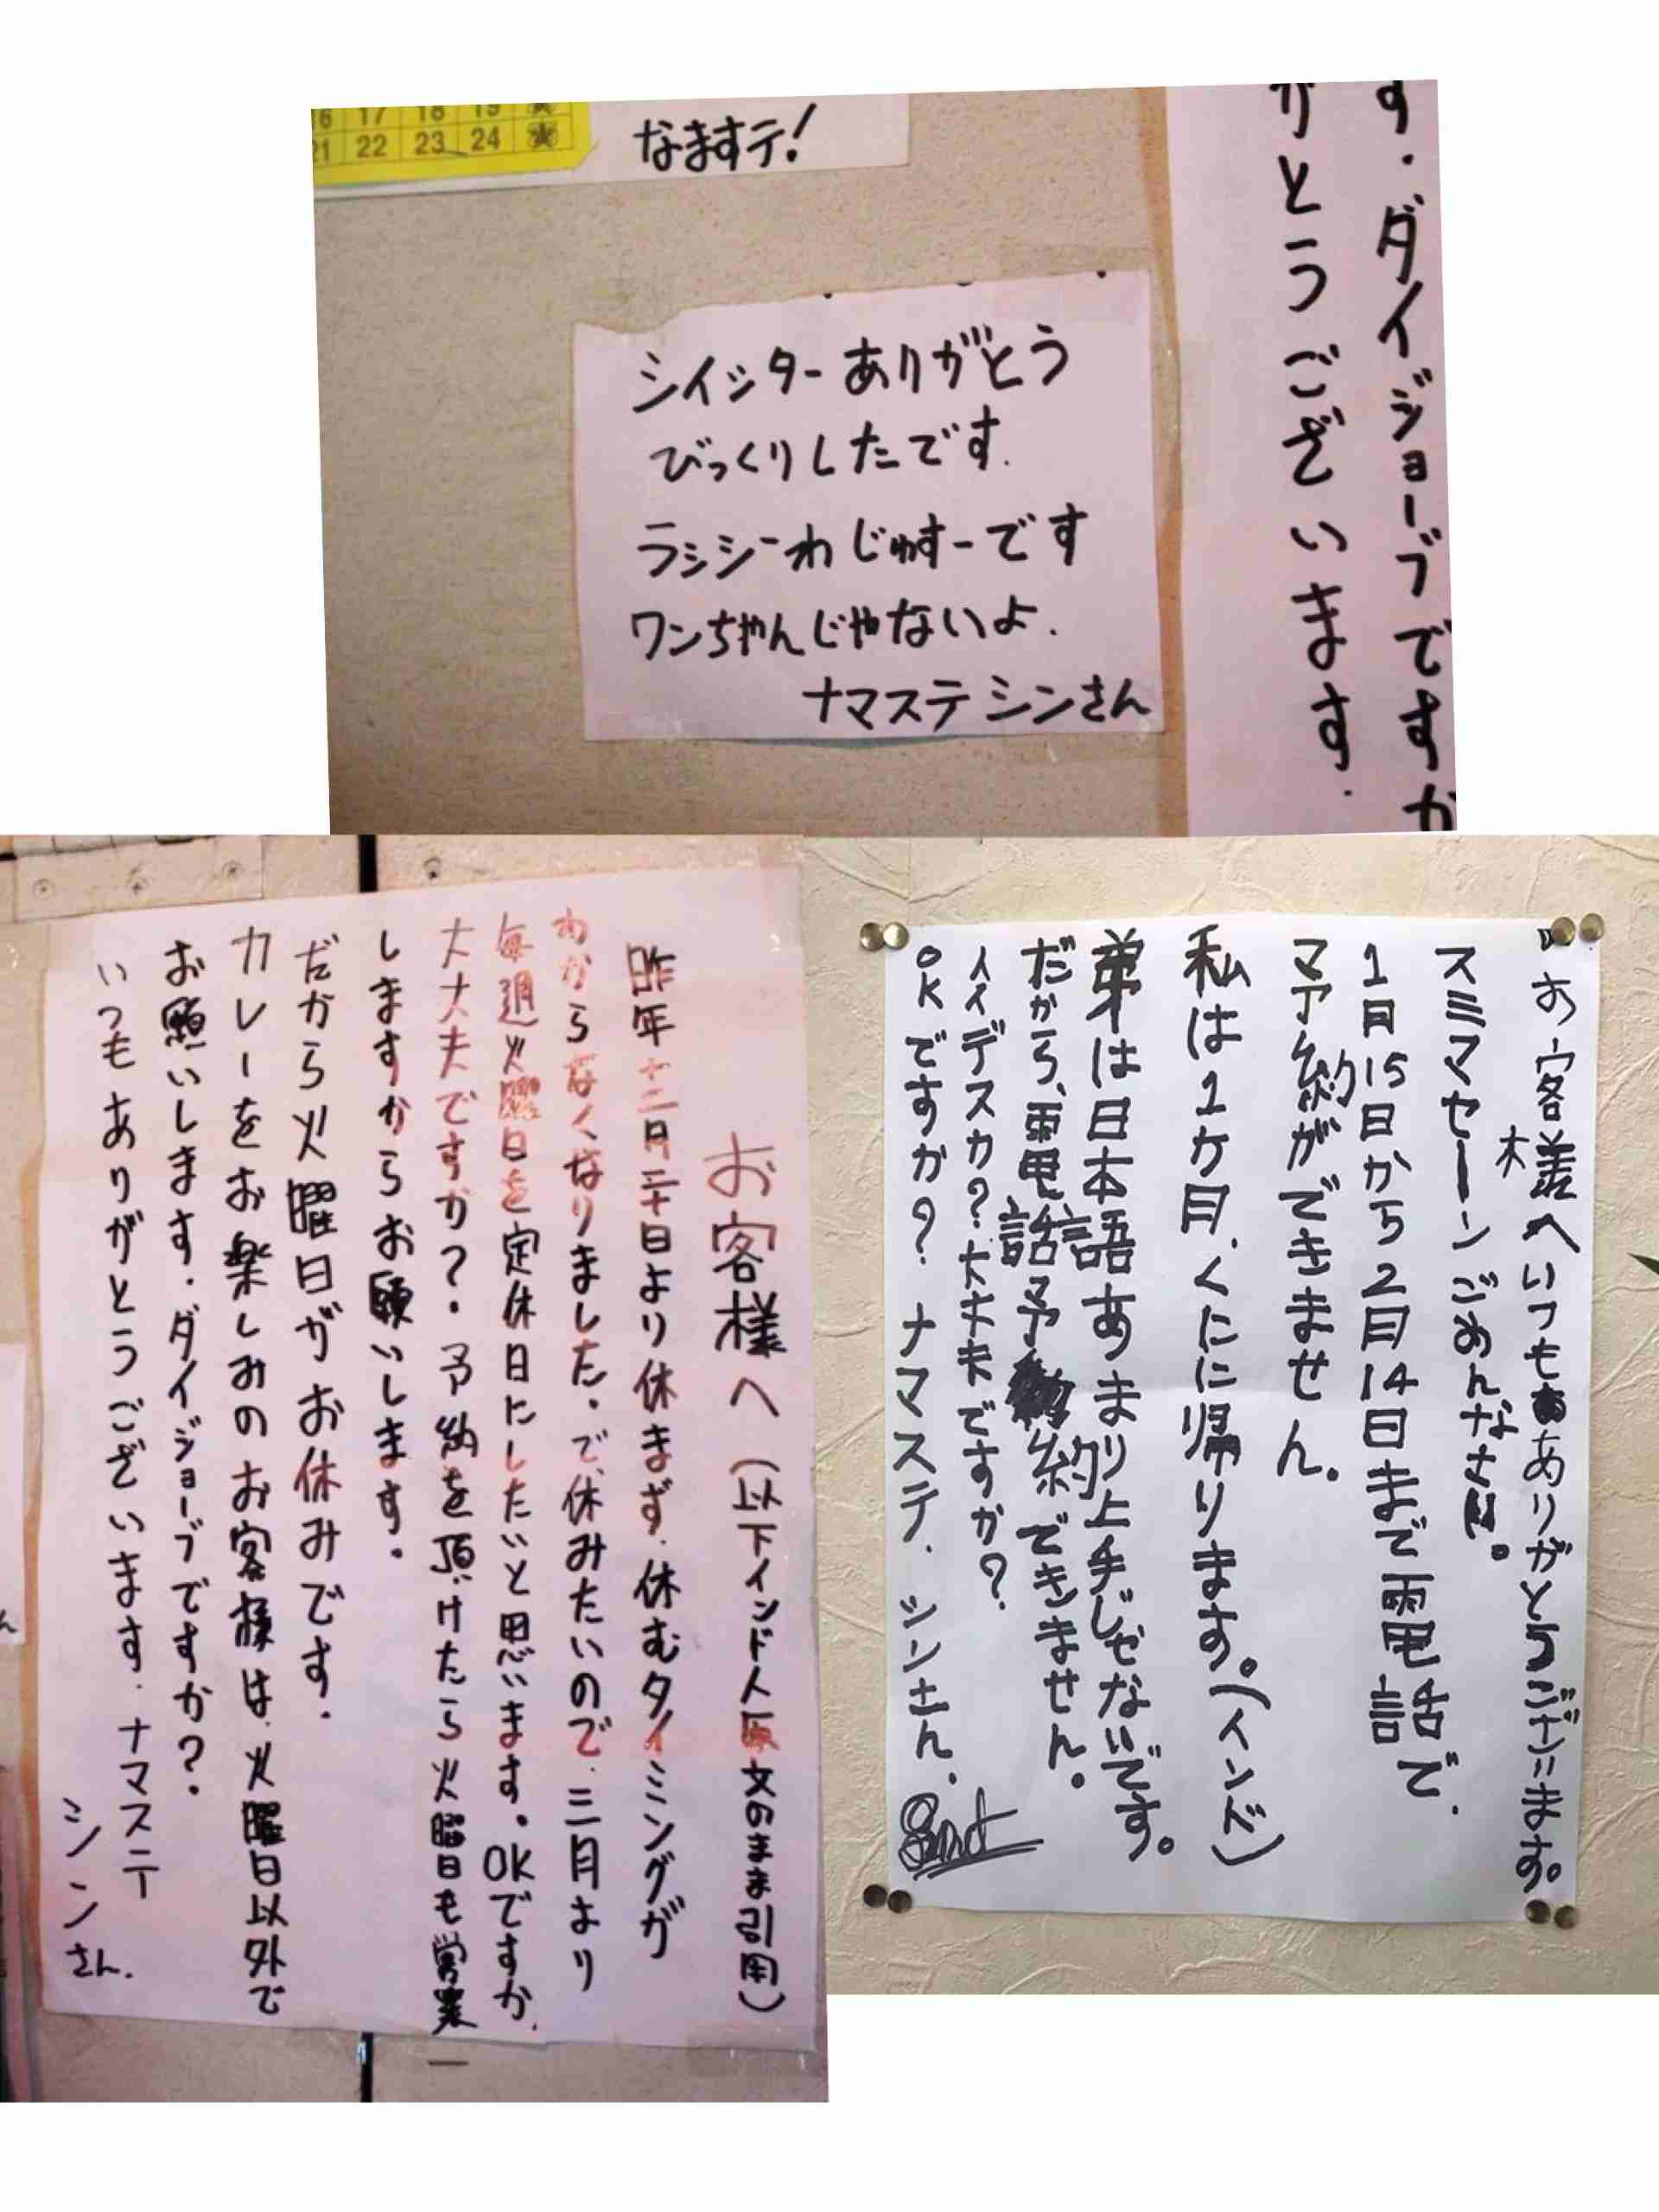 17 18 19
22 23 24
なますテ!
シイッターありがとう
びっくりしたです.
ラッシーわじゅすーです
ワンちゃんじゃないよ.
ナマステシンさん
す.ダイジョーブですか
りとうございます.
お客様へ(以下インド人原文のまま引用)
昨年十二月三十日より休まず.休むタイミングが
わからなくなりました.で、休みたいので.三月より
毎週火曜日を定休日にしたいと思います.OKですか.
大丈夫ですか?.予約を頂けたら火曜日も営業
しますからお願いします.
だから火曜日がお休みです.
カレーをお楽しみのお客様は.火曜日以外で
お願いします.ダイジョーブですか?.
いつもありがとうございます.ナマステ
シンさん.
お客様へいつもありがとうございます。
スミマセーンごめんなさい。
1月15日から2月14日まで電話で.
マア約ができません。
私は1ヶ月.くにに帰ります。(インド)
弟は日本語あまり上手じゃないです。
だから、電話予約できません。
イイデスカ?大丈夫ですか?
OKですか?ナマステ.シンさん.